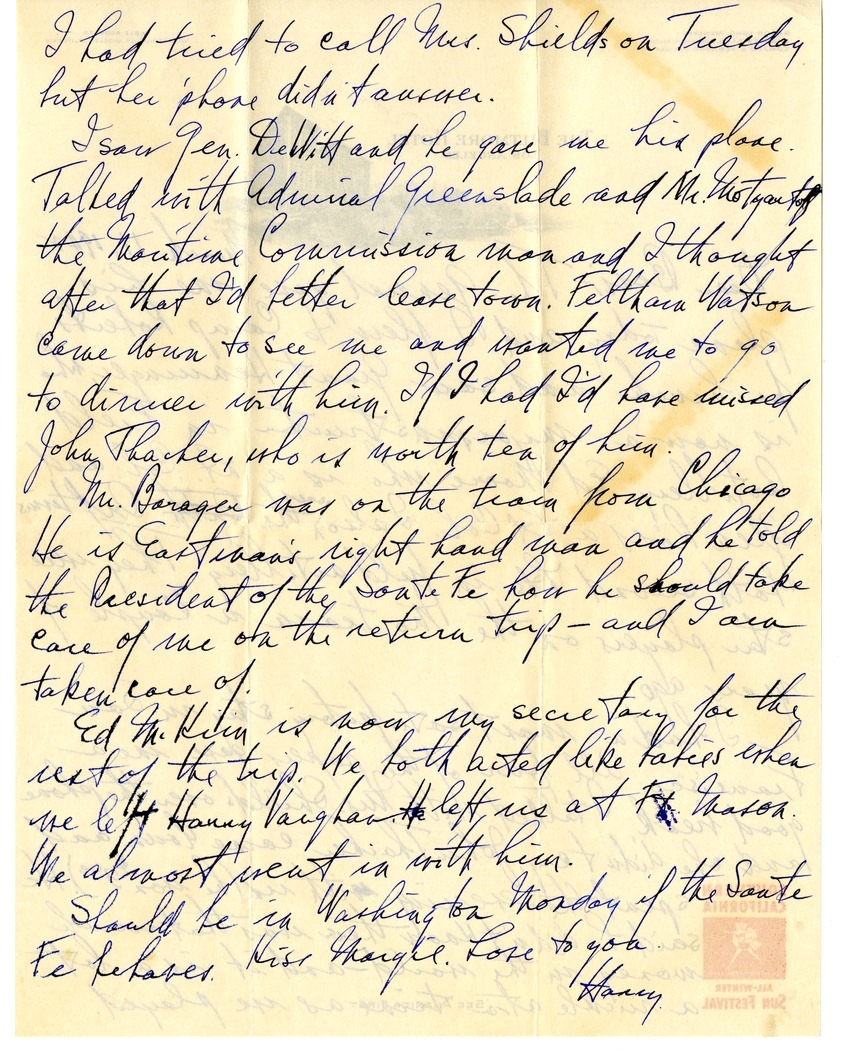 I had tried to call Mrs. Shields on Tuesday
but her 'phone didn't answer.
I saw Gen. DeWitt and he gave me his plane.
Talked with Admiral Greenslade and Mr.
the Maritime Commission man and I thought
after that I'd better leave town. Feltham Watson
came down to see me and wanted me to go
to dinner with him. If I had I'd have missed
John Thacher, who is worth ten of him.
Mr. Barager was on the train from Chicago
He is Eastman's right hand man and he told
the President of the Santa Fe how he should take
care of me on the return trip – and I am
taken care of.
Ed McKim is now my secretary for the
rest of the trip. We both acted like babies when
we left Harry Vaughan left us at Ft Mason.
We almost went in with him.
Should be in Washington Monday if the Santa
Fe behaves. Kiss Margie. Love to you.
Harry.
SOUTHERN
CALIFORNIA
ALL-WINTER
SUN FESTIVAL